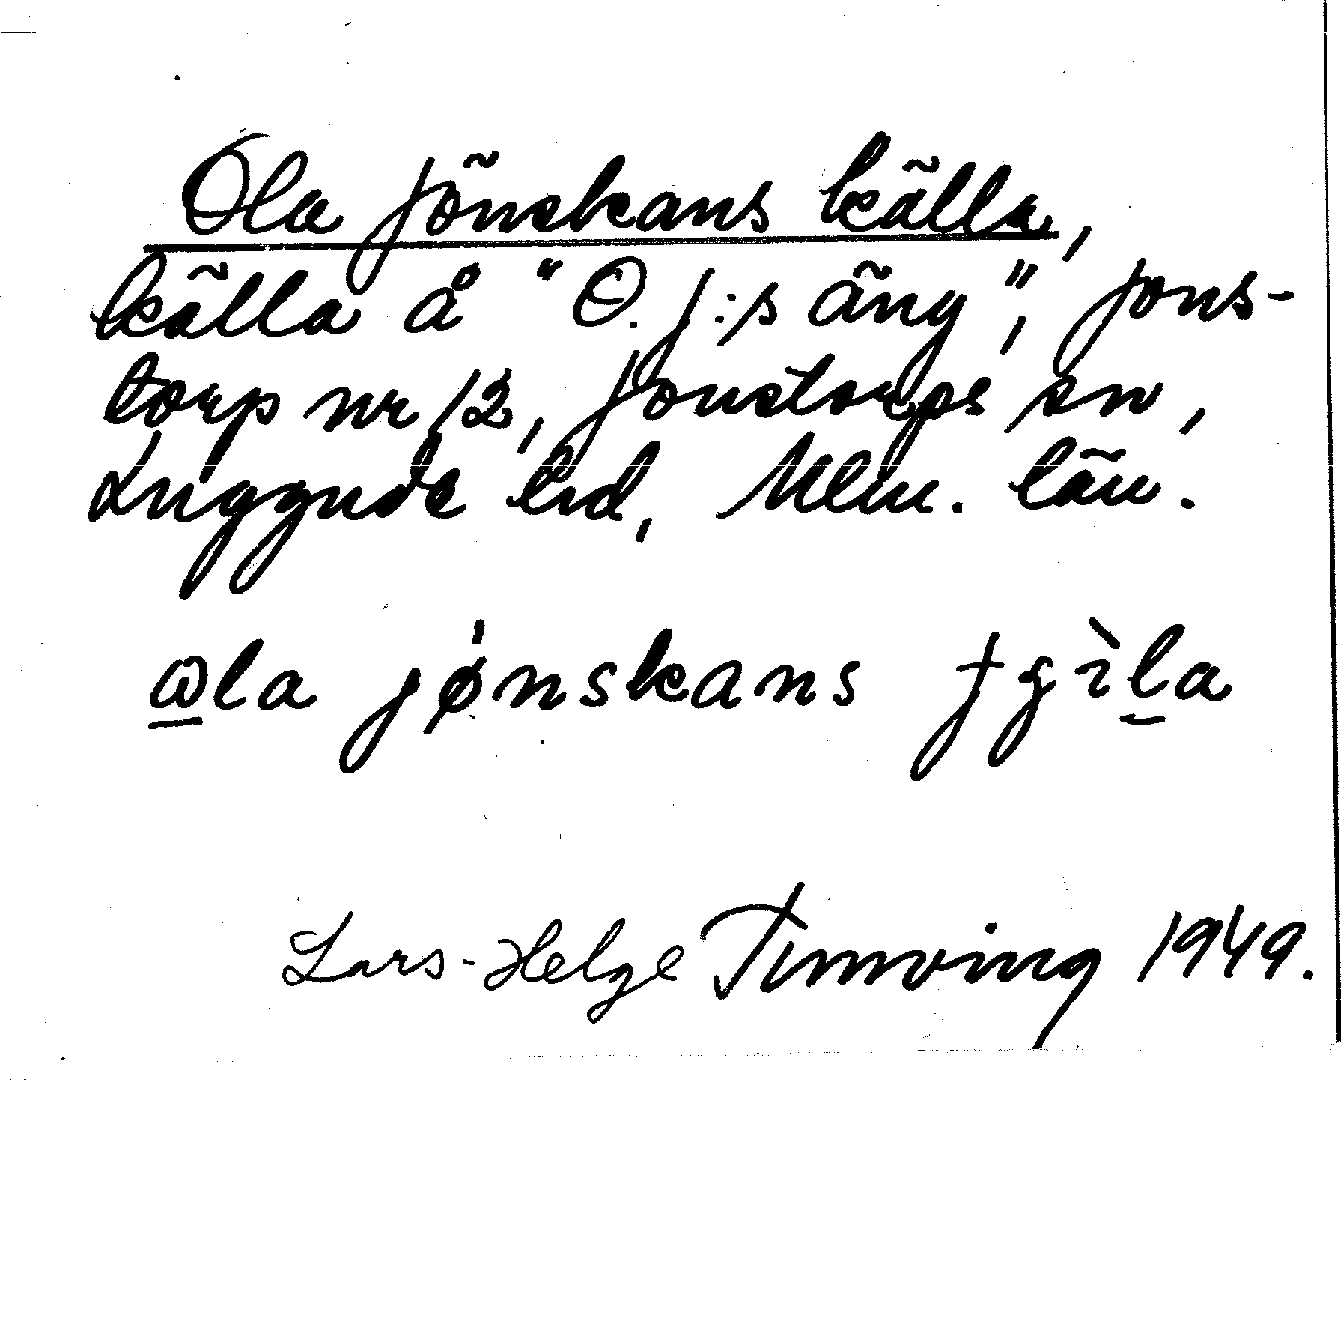 Ola Jönskans källa,
källa å "O. J:s äng", Jons-
torp nr 12, Jonstorps sn,
Luggude hd, Mlm. län.
ωla jønskans
Lars-Helge 1949.